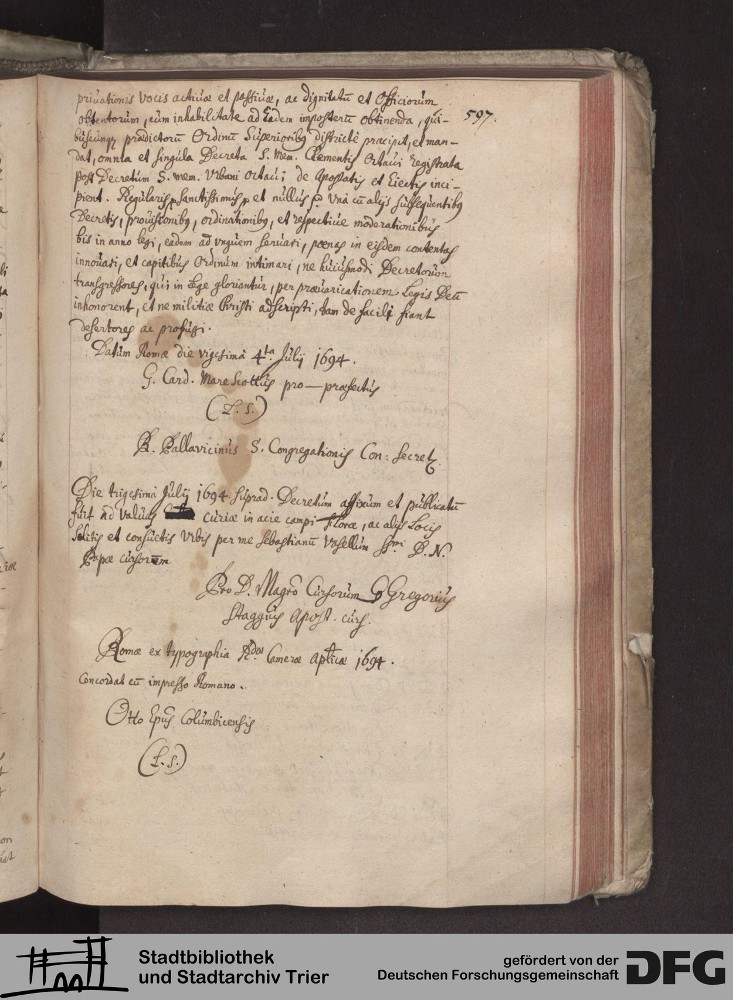 597.
priuationis vocis actiuæ et passiuæ, ac dignitatũ et Officiorum
obtentorum, cum inhabilitate ad eadem imposterũ obtinenda, qui-
buscunq; prædictorũ Ordinũ Superioribq districtè præcipit, et man-
dat, omnia et singula Decreta S. Mem. Clementis Octaui registrata
post Decretum S. mem. Urbani octaui; de Apostatis et Eiectis inci-
pient. Regularis, sanctissimus, et nullus, Unà cũ alijs subsequentibq
Decretis, prouisionibq, ordinationibq, et respectiue moderationibus
bis in anno legi, eadem ad unguem seruari, pœnas in eisdem contentas
innouari, et capitibus Ordinum intimari, ne huiusmodi Decretorum
transgressores, qui in Lege gloriantur, per præuaricationem Legis Deũ
inhonorent, et ne militiæ Christi adscripti, tam de facili fiant
desertores ac profugi.
Datum Romæ die vigesima 4ta. Julij 1694.
G. Card. Marescottus pro-præfectus
(L. S.)
R. Pallavicinus S. Congregationis Con: Secret.
Die trigesima Julij 1694 suprad. Decretum affixum et publicatũ
fuit ad valuas curiæ in acie campi Floræ, ac alijs Locis
solitis et consuetis Urbis per me Sebastianũ Vasellum Ssmi D. N.
Papæ cursorem
Pro D. Magrõ Cursorum Gregorius
Staggius Apost. curs.
Romæ ex typographia Rdæ Cameræ Aplicæ 1694.
Concordat cũ impresso Romano.
Otto Epus Columbricensis
(L. S.)
Stadtbibliothek
und Stadtarchiv Trier
gefördert von der
Deutschen Forschungsgemeinschaft
DFG